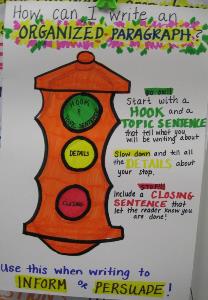 How can I write an
ORGANIZED PARAGRAPH?
HOOK &
TOPIC SENTENCE
GO ON!
Start with a
HOOK and a
TOPIC SENTENCE
that tell what you
will be writing about
DETAILS
Slow down and tell all
the DETAILS about
your stop.
CLOSING
STOP!
Include a CLOSING
SENTENCE that
let the reader know you
are done!
Use this when writing to
INFORM or PERSUADE!